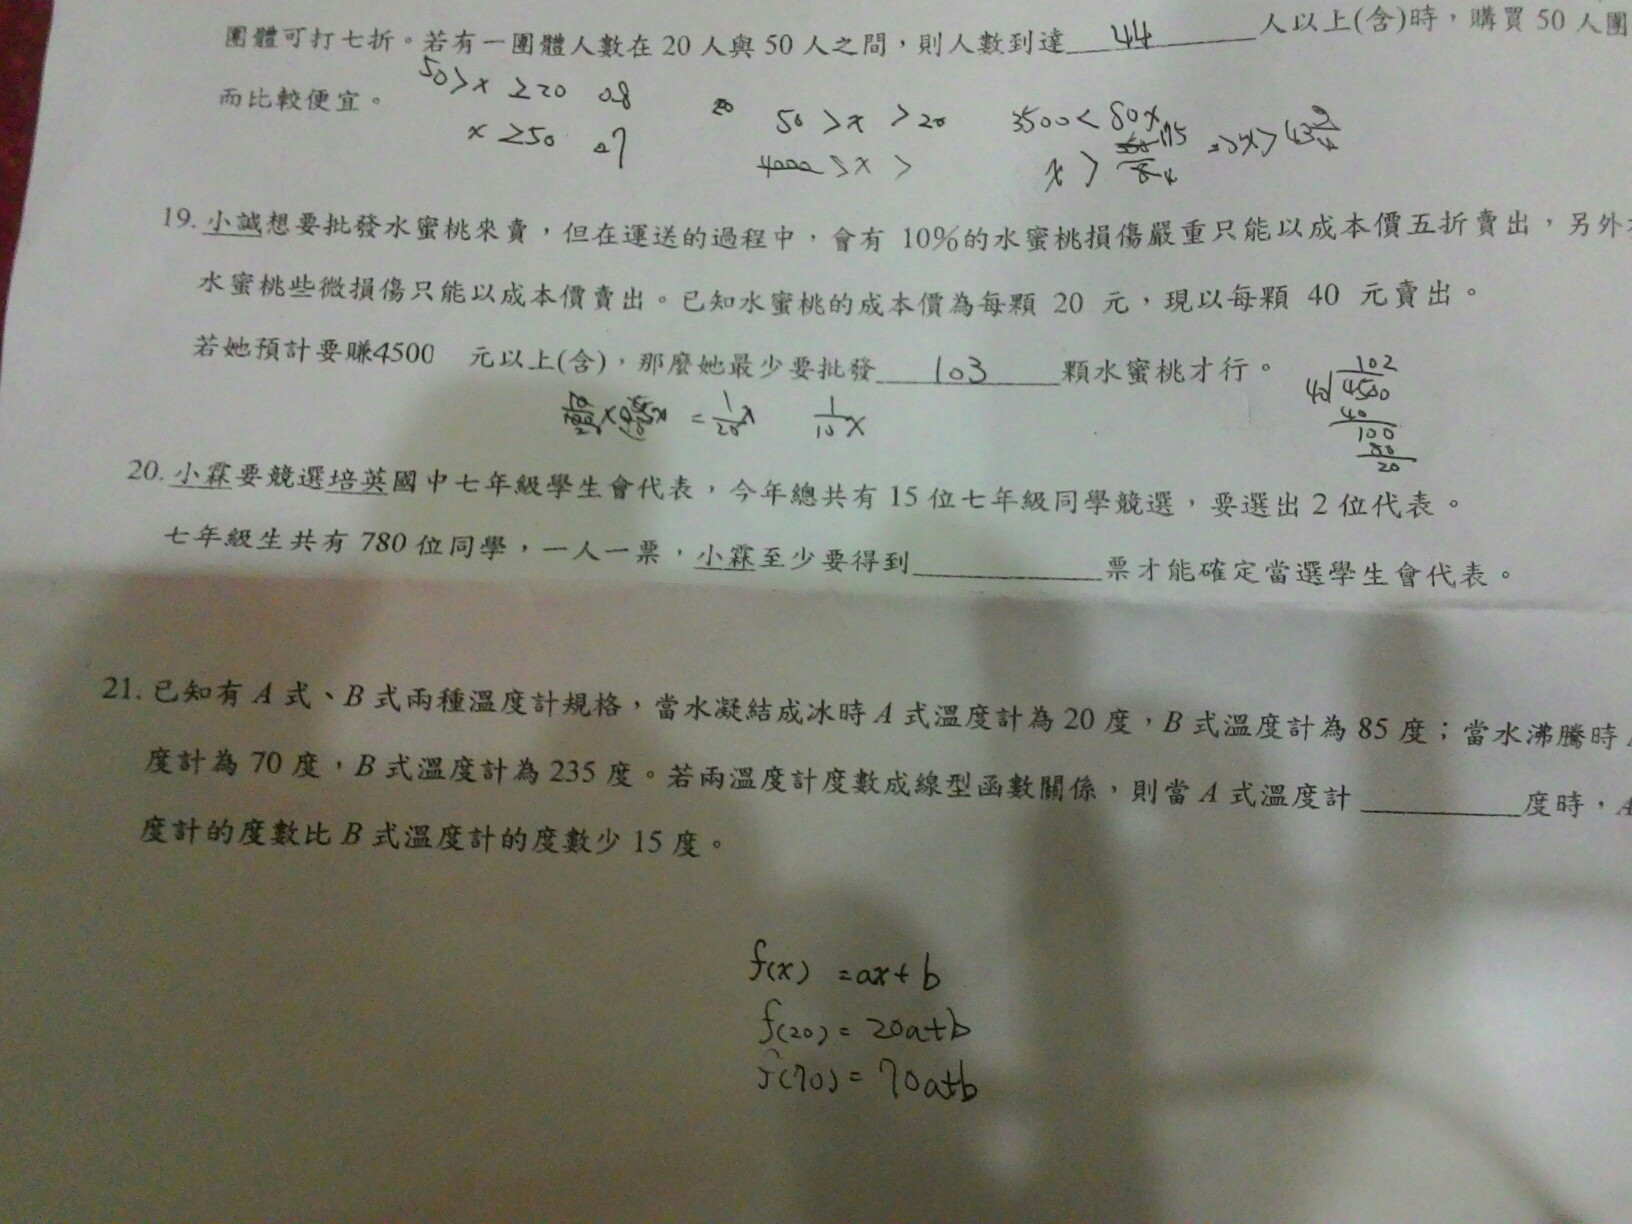 團體可打七折。若有一團體人數在 20 人與 50 人之間，則人數到達 44 人以上(含)時，購買 50 人團
而比較便宜。
50>x ≥20 0.8
x ≥50 0.7
50 >x >20
4000 8x >
3500< 80x
x > 175 => x> 43
19. 小誠想要批發水蜜桃來賣，但在運送的過程中，會有 10%的水蜜桃損傷嚴重只能以成本價五折賣出，另外
水蜜桃些微損傷只能以成本價賣出。已知水蜜桃的成本價為每顆 20 元，現以每顆 40 元賣出。
若她預計要賺4500 元以上(含)，那麼她最少要批發 103 顆水蜜桃才行。
= 1/20 x 1/10 x
102
40 4500
40
100
80
20
20. 小霖要競選培英國中七年級學生會代表，今年總共有 15 位七年級同學競選，要選出 2 位代表。
七年級生共有 780 位同學，一人一票，小霖至少要得到__________票才能確定當選學生會代表。
21. 已知有 A 式、B 式兩種溫度計規格，當水凝結成冰時 A 式溫度計為 20 度，B 式溫度計為 85 度；當水沸騰時
度計為 70 度，B 式溫度計為 235 度。若兩溫度計度數成線型函數關係，則當 A 式溫度計 __________度時，A
度計的度數比 B 式溫度計的度數少 15 度。
f(x) =ax+b
f(20)= 20a+b
f(70)= 70a+b